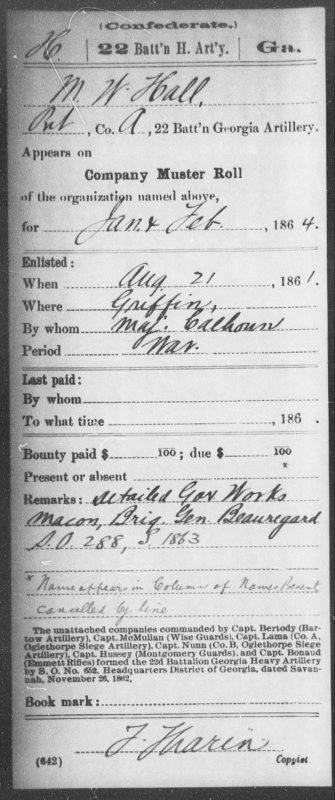 (Confederate.)
H | 22 Batt'n H. Art'y. | Ga.
M. W. Hall,
Pvt, Co. A, 22 Batt'n Georgia Artillery.
Appears on
Company Muster Roll
of the organization named above,
for Jan & Feb, 1864.
Enlisted:
When Aug 21, 1861.
Where Griffin,
By whom Maj. Calhoun
Period War.
Last paid:
By whom
To what time , 186 .
Bounty paid $ 100; due $ 100
*
Present or absent
Remarks: detailed Gov Works
Macon, Brig. Gen. Beauregard
S.O. 288, S 1863
* Name appears in Column of Names Present
cancelled by line
The unattached companies commanded by Capt. Bertody (Bar-
tow Artillery), Capt. McMullan (Wise Guards), Capt. Lama (Co. A,
Oglethorpe Siege Artillery), Capt. Nunn (Co. B, Oglethorpe Siege
Artillery), Capt. Hussey (Montgomery Guards), and Capt. Bonaud
(Emmett Rifles) formed the 22d Battalion Georgia Heavy Artillery
by S. O. No. 652, Headquarters District of Georgia, dated Savan-
nah, November 26, 1862.
Book mark:
(642) Copyist.